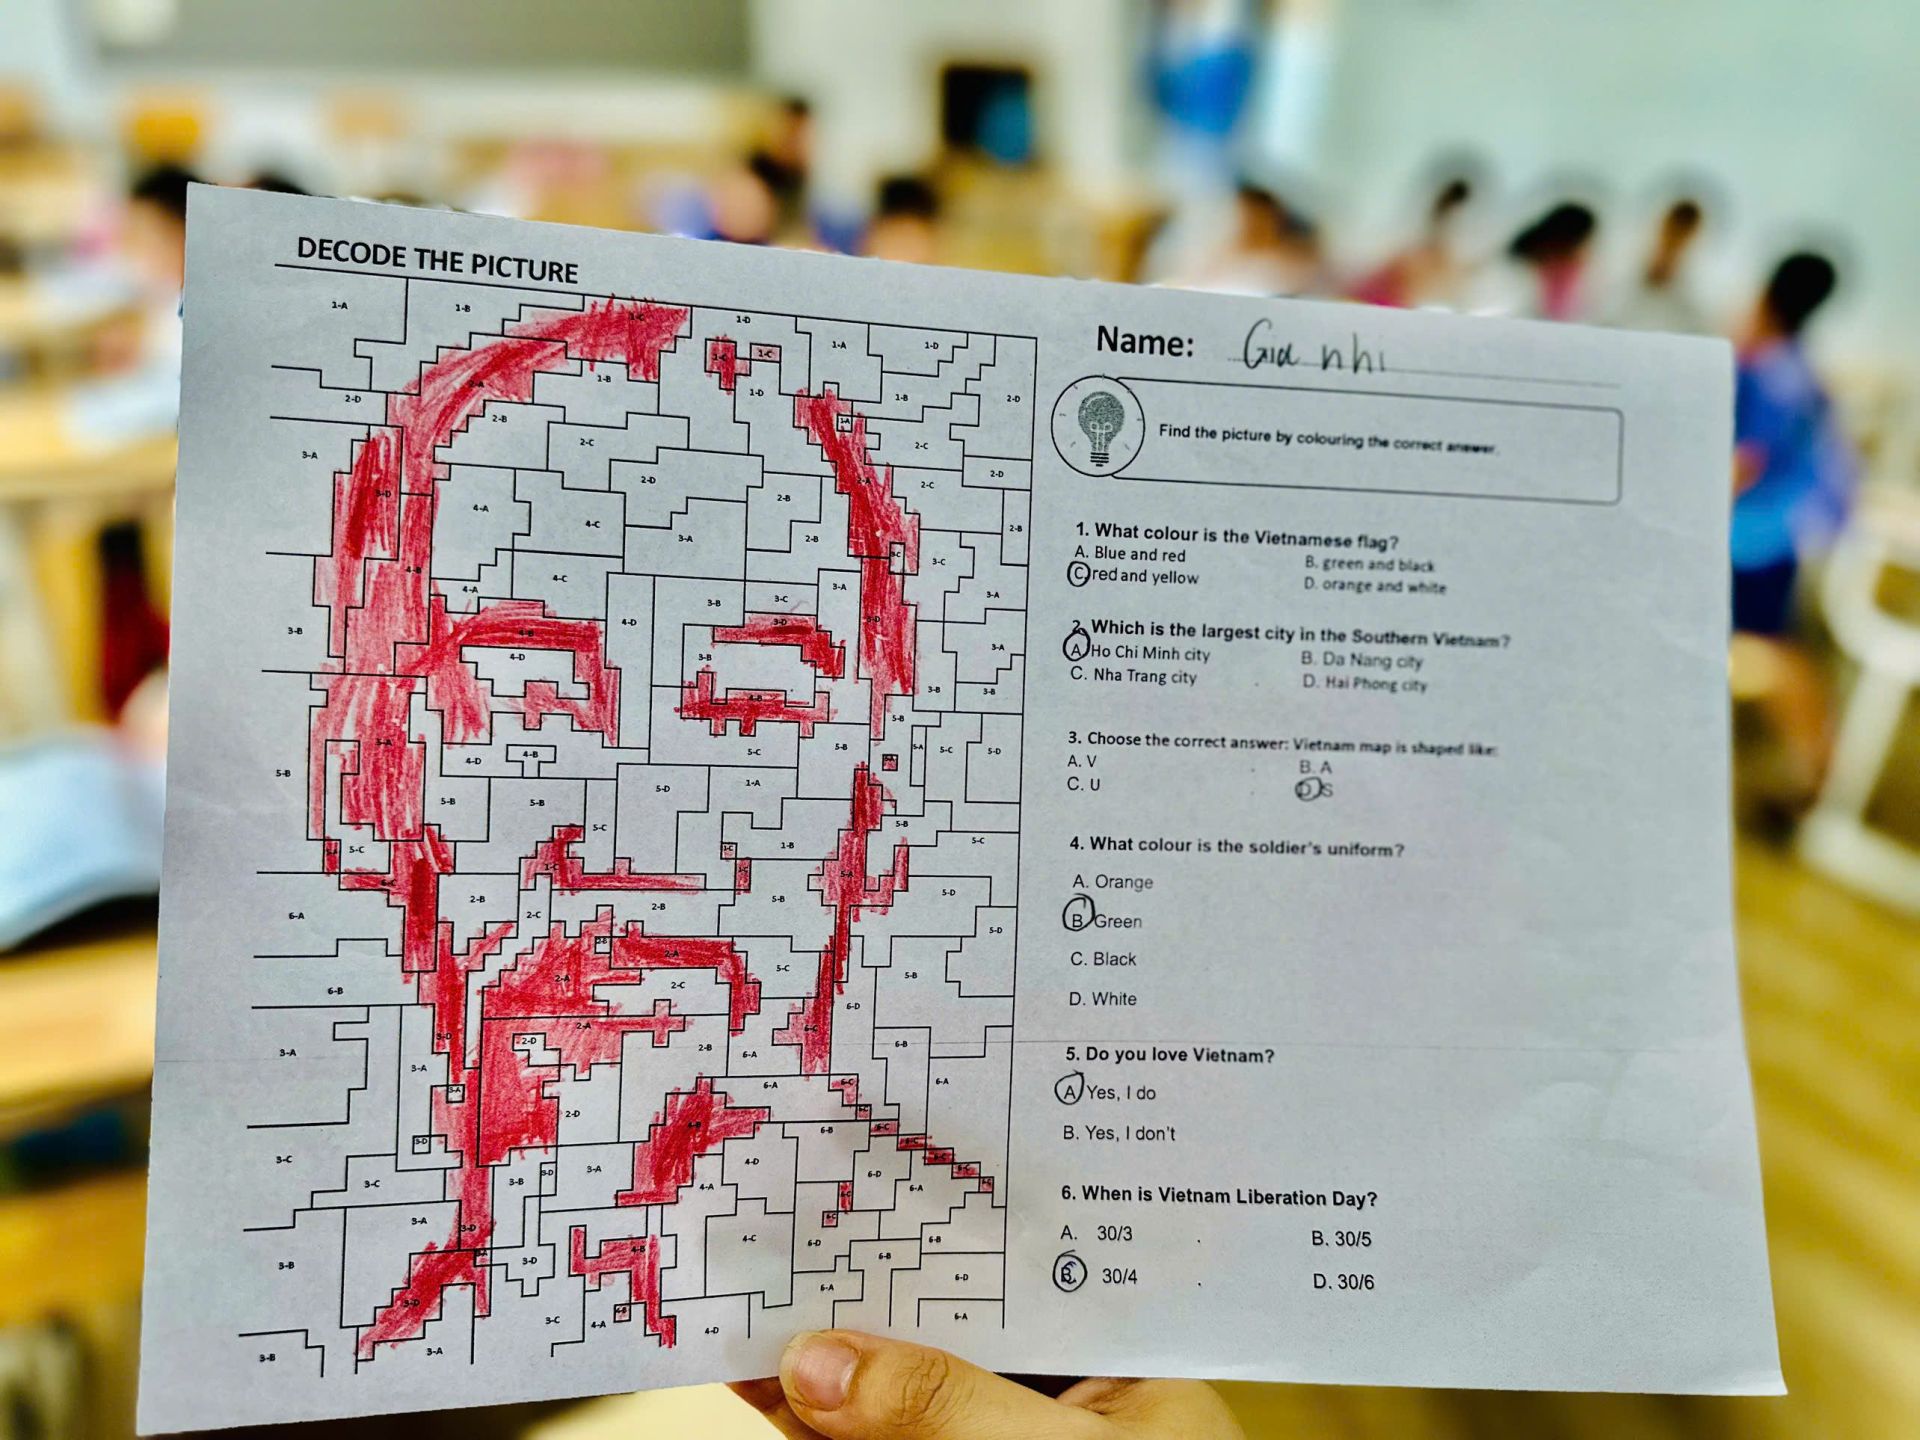 DECODE THE PICTURE
Name: Gia nhi
Find the picture by colouring the correct answer.
1. What colour is the Vietnamese flag?
A. Blue and red B. green and black
C. red and yellow D. orange and white
2. Which is the largest city in the Southern Vietnam?
A. Ho Chi Minh city B. Da Nang city
C. Nha Trang city D. Hai Phong city
3. Choose the correct answer: Vietnam map is shaped like:
A. V B. A
C. U D. S
4. What colour is the soldier's uniform?
A. Orange
B. Green
C. Black
D. White
5. Do you love Vietnam?
A. Yes, I do
B. Yes, I don't
6. When is Vietnam Liberation Day?
A. 30/3 B. 30/5
30/4 D. 30/6
1-A 1-B 1-C 1-D
1-C 1-C 1-A 1-D
2-A 1-B 1-D 1-B 2-D
2-D 2-B 2-C 1-A 2-C
3-A 2-D 2-A 2-C 2-D
3-D 4-A 4-C 3-A 2-B 2-B 2-B
4-B 4-A 4-C 3-A 3-C 3-C 3-A
3-B 4-B 4-D 3-B 3-C 3-D 3-A
4-D 3-B 4-B 3-B 3-B
5-B 4-D 4-B 5-C 5-B 5-B 5-A 5-C 5-D
5-B 5-B 5-D 1-A
5-C 5-C 1-C 1-B 5-B 5-C
6-A 2-B 1-C 1-C 5-B 5-A 5-D
2-C 2-B 5-D
6-B 2-A 2-B 2-A 2-C 5-C 5-B
3-A 3-D 2-A 2-D 2-B 6-A 6-C 6-D 6-B
3-A 3-A 2-D 6-A 6-C 6-A
3-C 3-D 4-B 6-B 6-C 6-C
3-C 3-B 3-D 3-A 4-A 4-D 6-D 6-A 6-C
3-A 3-D 4-C 6-C 6-C 6-B
3-B 3-D 4-B 6-D 6-B 6-D
3-D 3-C 4-A 4-B 6-A 6-A
3-B 3-A 4-D